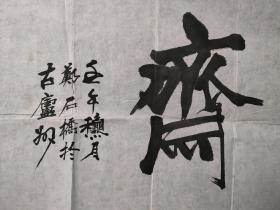 齋
壬午穐月
鄭石橋於
古廬州